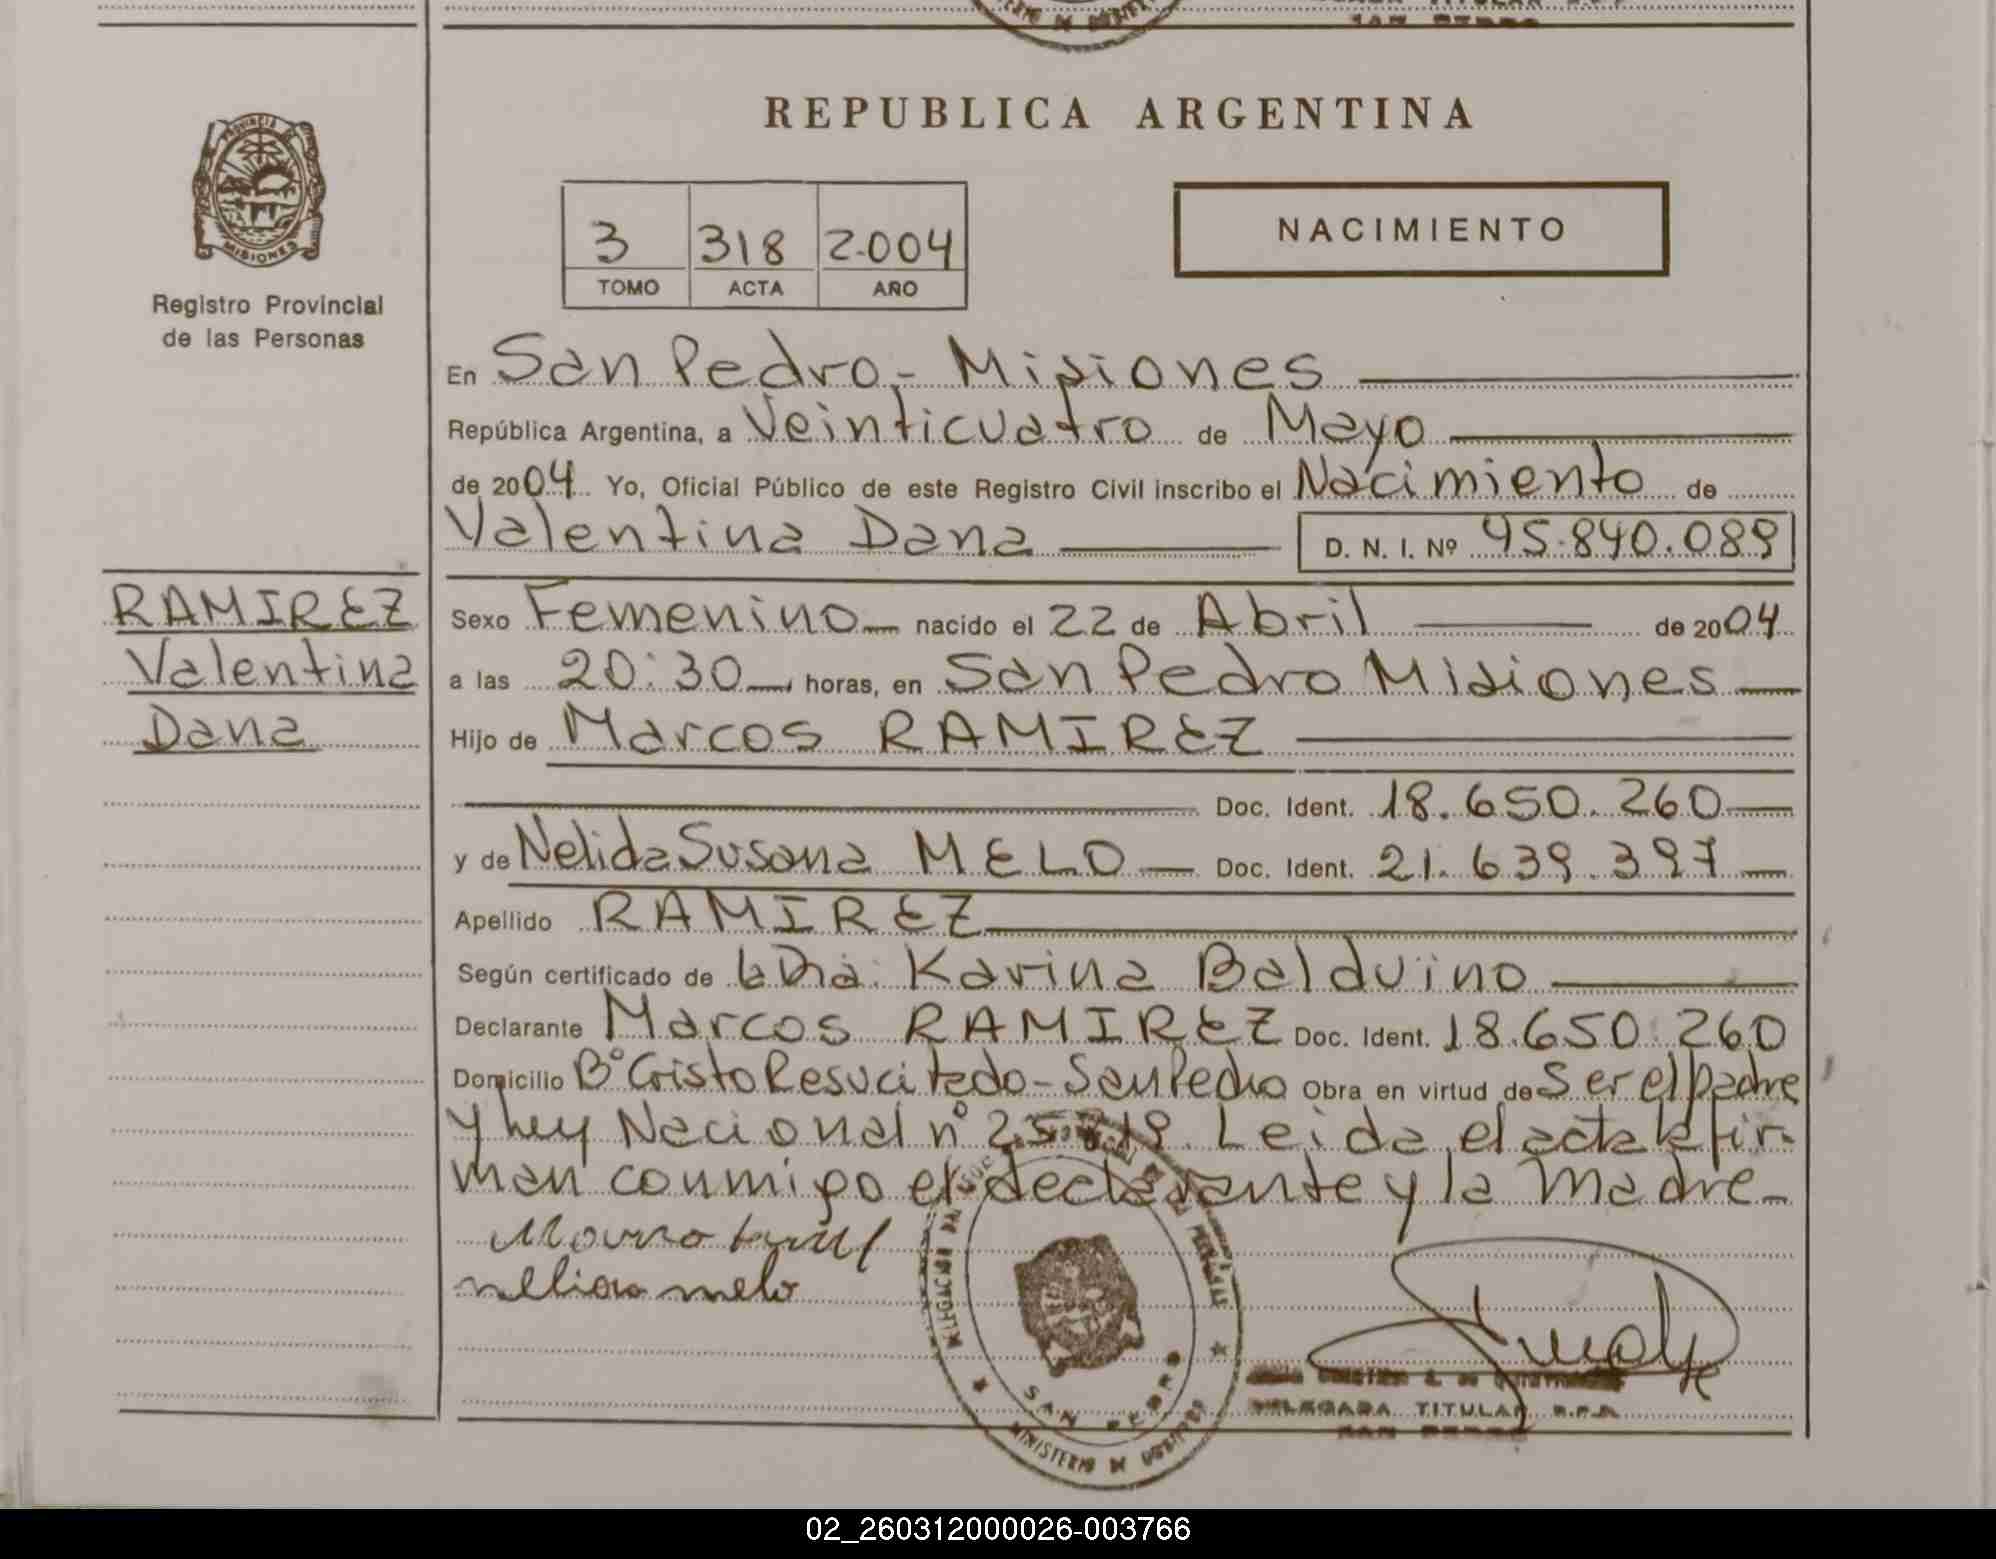 REPUBLICA ARGENTINA
PROVINCIA DE
MISIONES
Registro Provincial
de las Personas
3 318 2.004
TOMO ACTA AÑO
NACIMIENTO
En San Pedro.- Misiones
República Argentina, a Veinticuatro de Mayo
de 2004 Yo, Oficial Público de este Registro Civil inscribo el Nacimiento de
Valentina Dana D. N. I. Nº 45.840.089
RAMIREZ
Valentina
Dana
Sexo Femenino nacido el 22 de Abril de 2004
a las 20:30 horas, en San Pedro Misiones
Hijo de Marcos RAMIREZ
Doc. Ident. 18.650.260
y de Nelida Susana MELO Doc. Ident. 21.639.397
Apellido RAMIREZ
Según certificado de la Dra. Karina Balduino
Declarante Marcos RAMIREZ Doc. Ident. 18.650.260
Domicilio Bº Cristo Resucitado - San Pedro Obra en virtud de Ser el padre
y Ley Nacional nº Leida el acta la fir-
man conmigo el declarante y la Madre.-
melo
SAN PEDRO
MINISTERIO DE GOBIERNO
DELEGADA TITULAR R.P.P.
SAN PEDRO
02_260312000026-003766